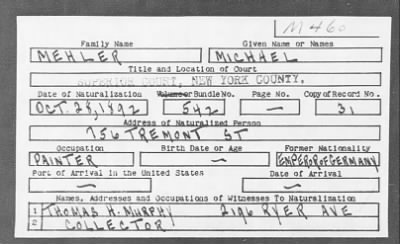 M 460
Family Name Given Name or Names
MEHLER MICHAEL
Title and Location of Court
SUPERIOR COURT, NEW YORK COUNTY.
Date of Naturalization Volume or Bundle No. Page No. Copy of Record No.
OCT. 28, 1892 542 — 31
Address of Naturalized Person
756 TREMONT ST
Occupation Birth Date or Age Former Nationality
PAINTER — EMPEROR OF GERMANY
Port of Arrival in the United States Date of Arrival
— —
Names, Addresses and Occupations of Witnesses To Naturalization
1 THOMAS H. MURPHY 2196 RYER AVE
2 COLLECTOR